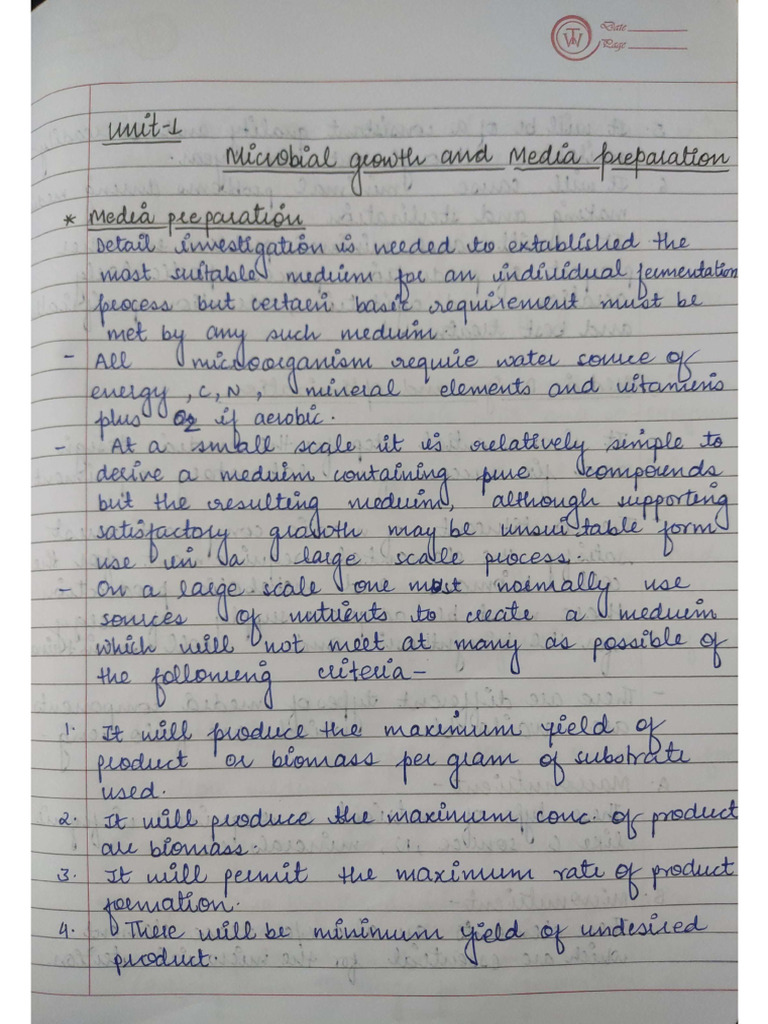 Date
Page
Unit-1
Microbial growth and Media preparation
* Media preparation
Detail investigation is needed to extablished the
most suitable medium for an individual fermentation
process but certain basic requirement must be
met by any such medium.
- All microorganism require water source of
energy, C, N, mineral elements and vitamins
plus O2 if aerobic.
- At a small scale it is relatively simple to
derive a medium containing pure compounds
but the resulting medium, although supporting
satisfactory growth may be unsuitable form
use in a large scale process.
- On a large scale one must normally use
sources of nutrients to create a medium
which will not meet at many as possible of
the following criteria -
1. It will produce the maximum yield of
product or biomass per gram of substrate
used.
2. It will produce the maximum conc. of product
are biomass.
3. It will permit the maximum rate of product
formation.
4. There will be minimum yield of undesired
product.